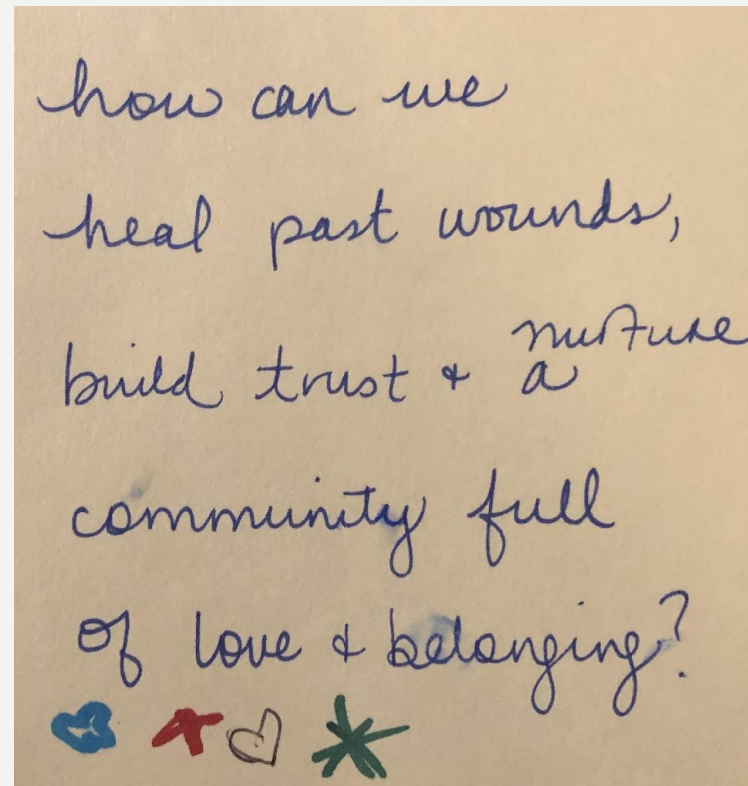 how can we
heal past wounds,
build trust & nurture a
community full
of love & belonging?